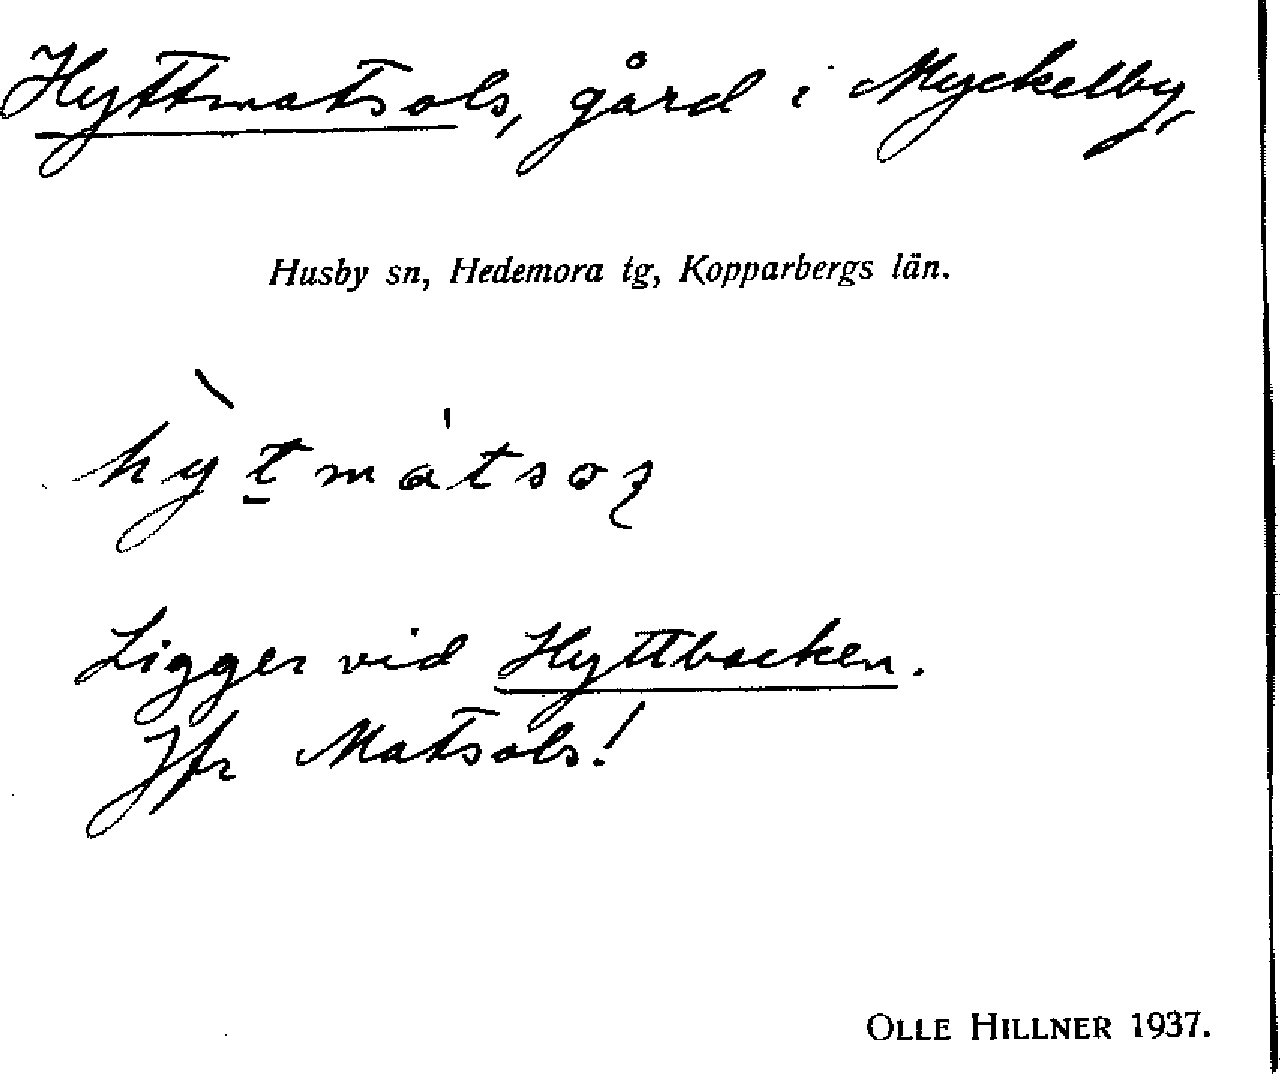 Hyttmatsols, gård i Myckelby,
Husby sn, Hedemora tg, Kopparbergs län.
hỳ̠tmátsoʐ
Ligger vid Hyttbacken.
Jfr Matsols!
OLLE HILLNER 1937.